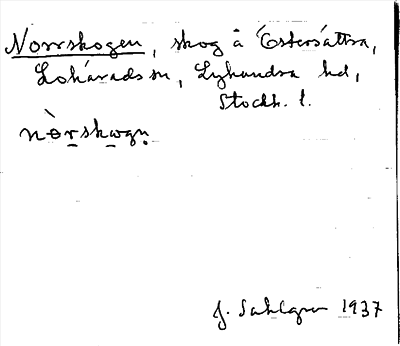 Norrskogen, skog å Östersättra,
Lohärads sn, Lyhundra hd,
Stockh. l.
nòrskogn.
J. Sahlgren 1937